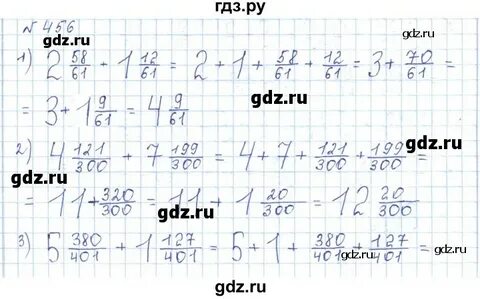 гдз.ру
№ 456
gdz.ru gdz.ru
1) 2 58/61 + 1 12/61 = 2 + 1 + 58/61 + 12/61 = 3 + 70/61 =
= 3 + 1 9/61 = 4 9/61
gdz.ru gdz.ru
2) 4 121/300 + 7 199/300 = 4 + 7 + 121/300 + 199/300 =
gdz.ru gdz.ru
= 11 + 320/300 = 11 + 1 20/300 = 12 20/300
gdz.ru gdz.ru
3) 5 380/401 + 1 127/401 = 5 + 1 + 380/401 + 127/401 =
gdz.ru gdz.ru